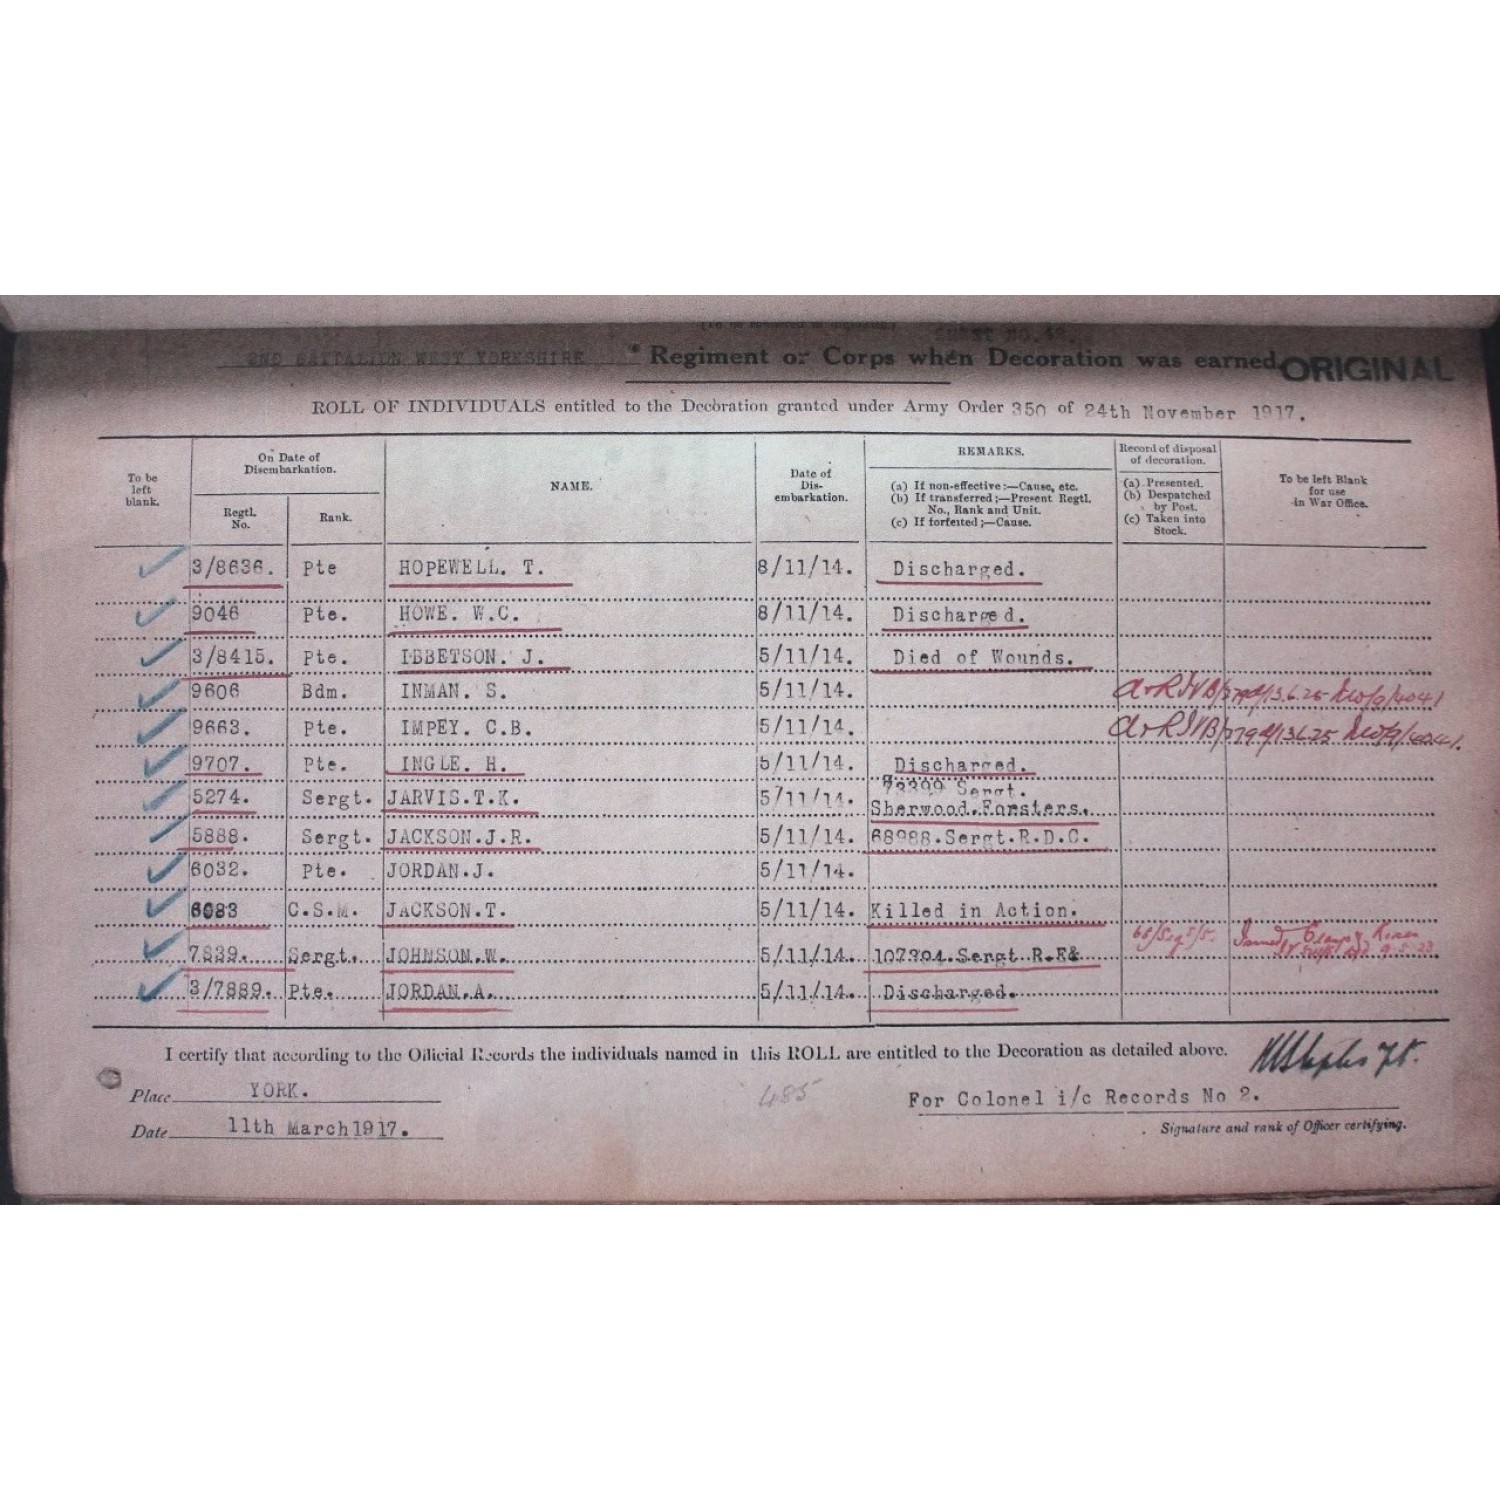 2ND BATTALION WEST YORKSHIRE * Regiment or Corps when Decoration was earned ORIGINAL
ROLL OF INDIVIDUALS entitled to the Decoration granted under Army Order 350 of 24th November 1917.
To be left blank.
On Date of Disembarkation.
Regtl. No.
Rank.
NAME.
Date of Dis-embarkation.
REMARKS.
(a) If non-effective:—Cause, etc.
(b) If transferred;—Present Regtl. No., Rank and Unit.
(c) If forfeited;—Cause.
Record of disposal of decoration.
(a) Presented.
(b) Despatched by Post.
(c) Taken into Stock.
To be left Blank for use in War Office.
3/8636. Pte HOPEWELL. T. 8/11/14. Discharged.
9046 Pte. HOWE. W.C. 8/11/14. Discharged.
3/8415. Pte. IBBETSON. J. 5/11/14. Died of Wounds.
9606 Bdm. INMAN. S. 5/11/14.
9663. Pte. IMPEY. C.B. 5/11/14.
9707. Pte. INGLE. H. 5/11/14. Discharged.
5274. Sergt. JARVIS.T.K. 5/11/14. Sergt. Sherwood.Forsters.
5888. Sergt. JACKSON.J.R. 5/11/14. 68988.Sergt.R.D.C.
6032. Pte. JORDAN.J. 5/11/14.
6083 C.S.M. JACKSON.T. 5/11/14. Killed in Action.
7839. Sergt. JOHNSON.W. 5/11/14. 107304.Sergt R.E&
3/7889. Pte. JORDAN.A. 5/11/14. Discharged.
I certify that according to the Official Records the individuals named in this ROLL are entitled to the Decoration as detailed above.
Place YORK.
485
For Colonel i/c Records No 2.
Date 11th March1917.
Signature and rank of Officer certifying.